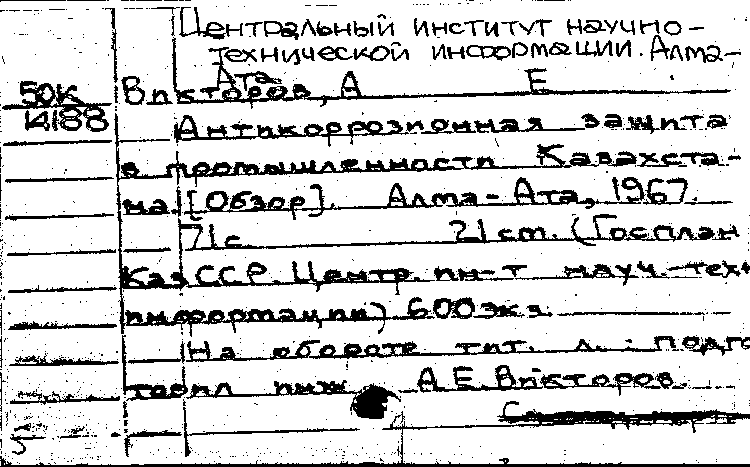 Центральный институт научно-
технической информации. Алма-
Ата
50К Викторов, А Е
14188 Антикоррозионная защита
в промышленности Казахста-
на. [Обзор]. Алма-Ата, 1967.
71 с 21 ст. (Госплан
КазССР. Центр. ин-т науч.-техн
информации) 600 экз.
На обороте тит. л.: подго
товил инж А.Е. Викторов.